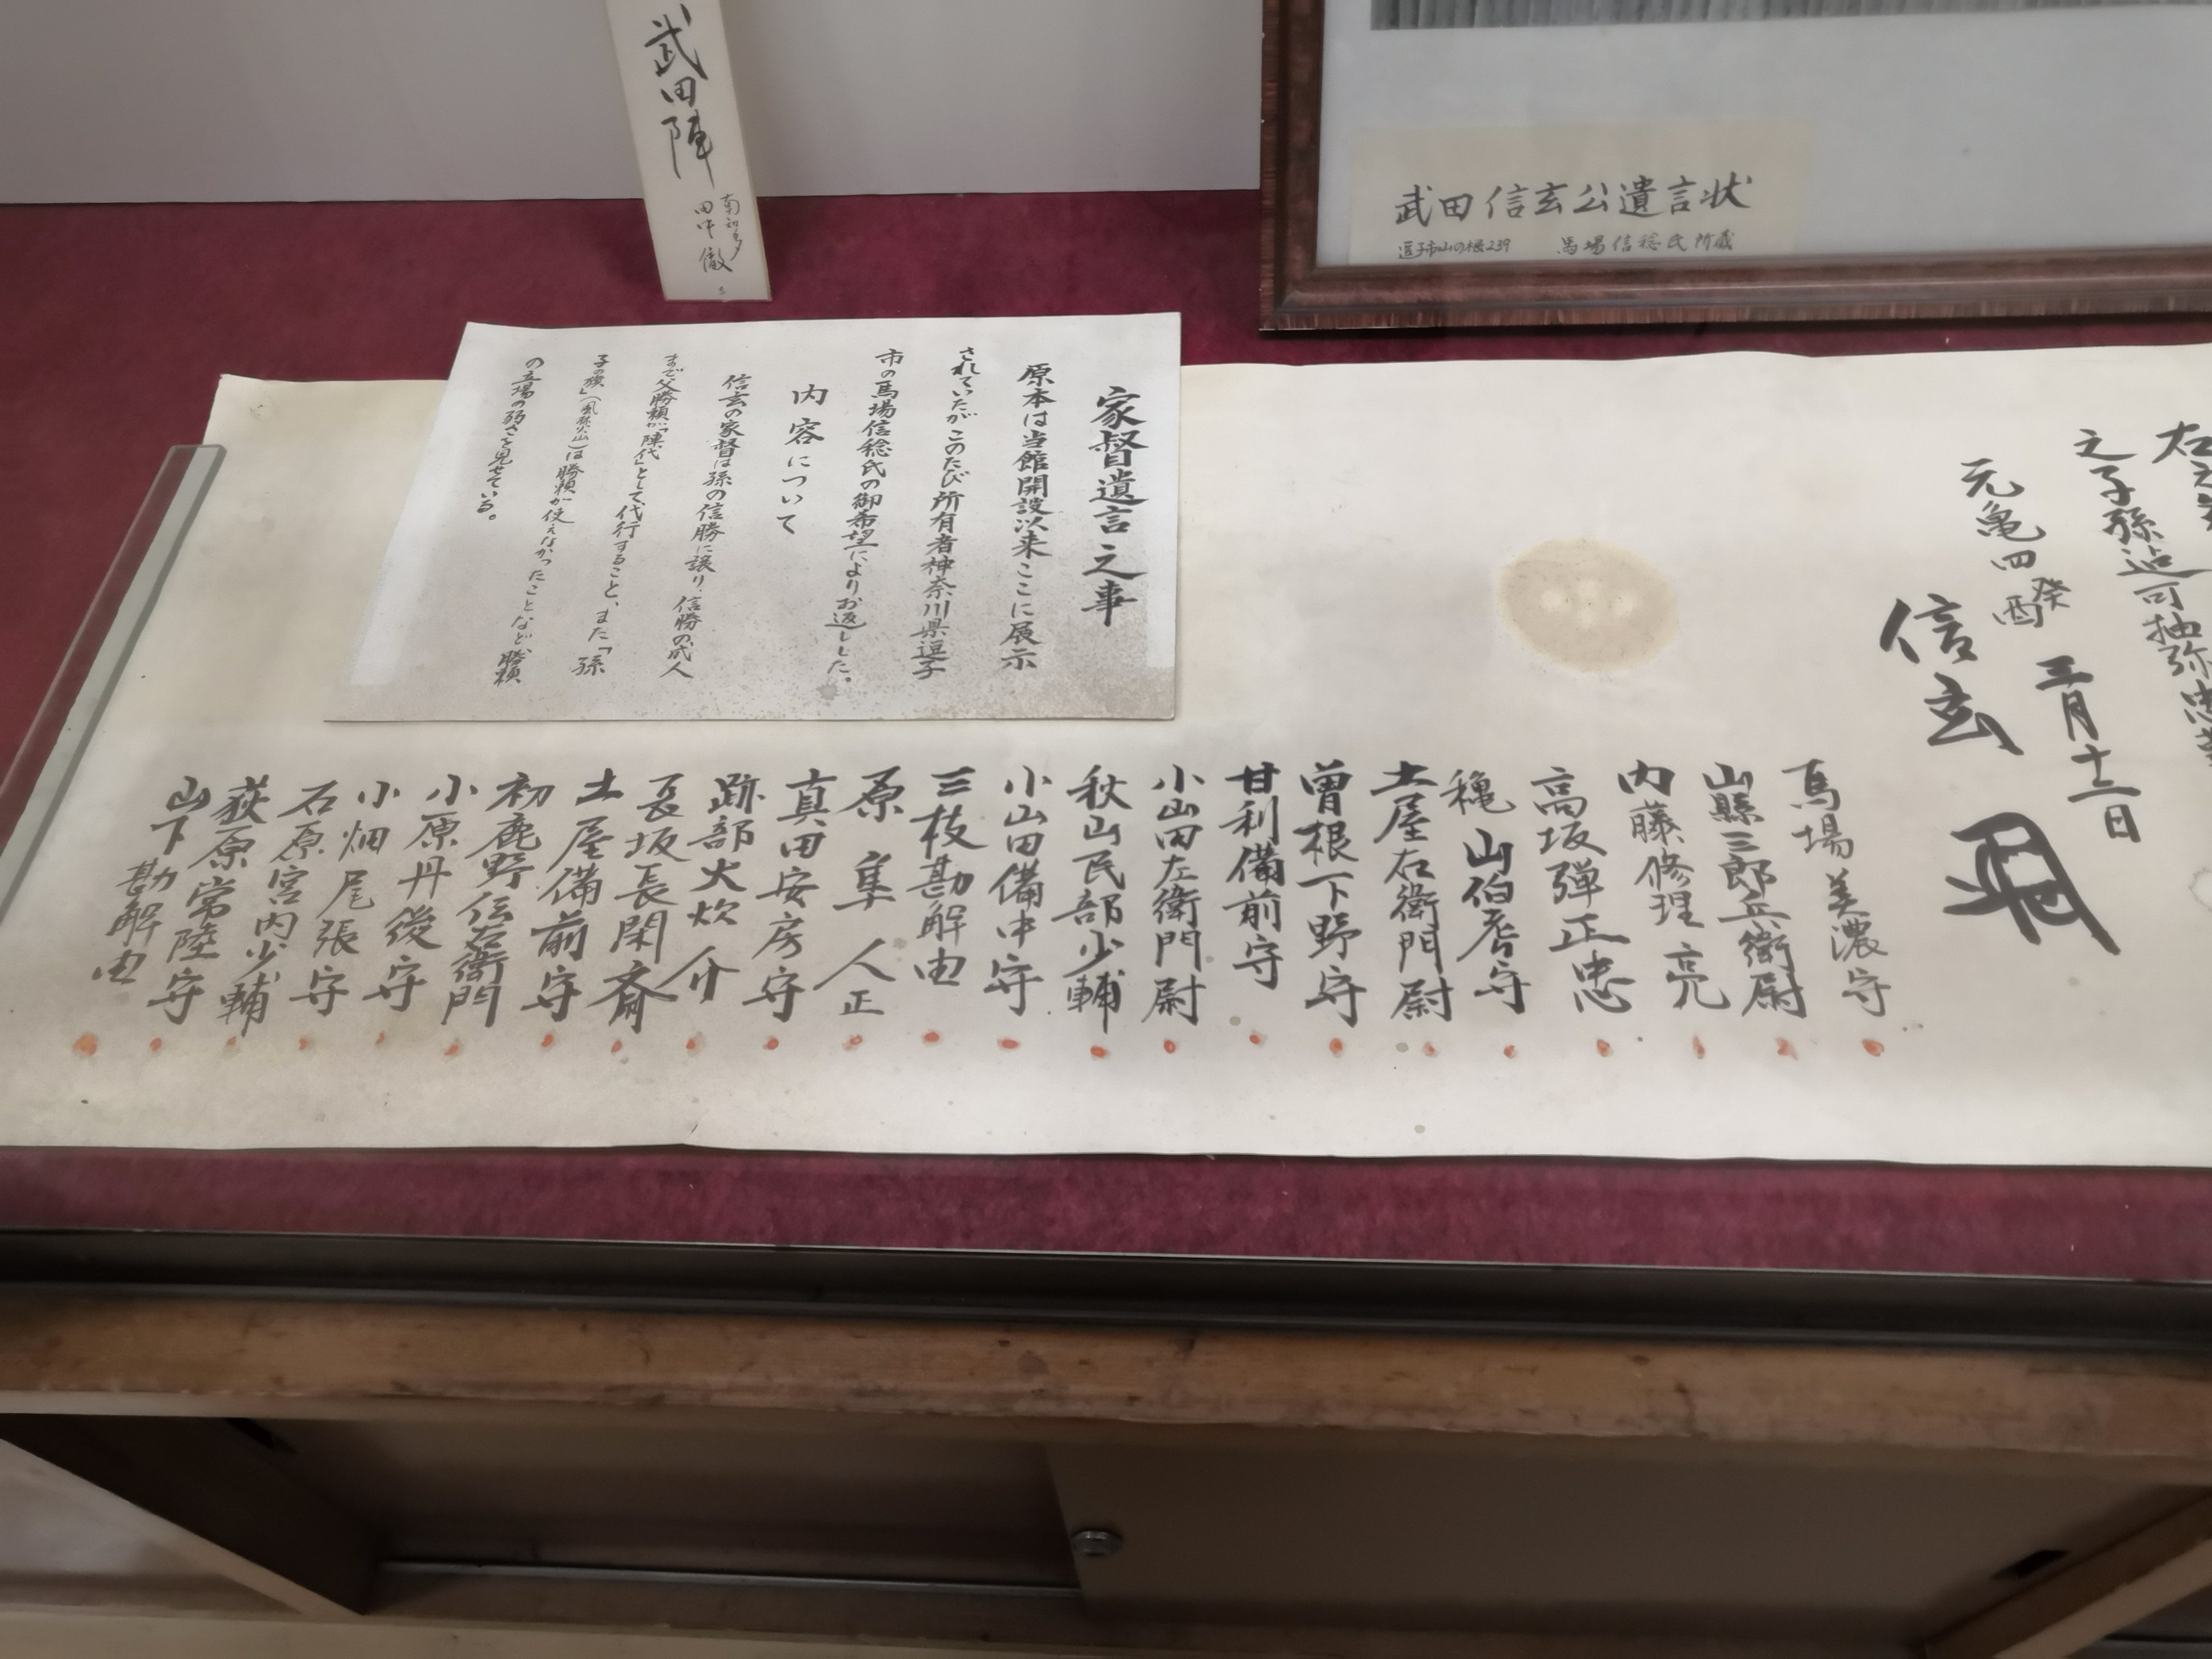 武田陣
南知多
田中徹
武田信玄公遺言状
逗子市山の根239 馬場信稔氏所蔵
家督遺言之事
原本は当館開設以来ここに展示
されていたがこのたび所有者神奈川県逗子
市の馬場信稔氏の御希望によりお返しした。
内容について
信玄の家督は孫の信勝に譲り、信勝の成人
まで父勝頼が「陣代」として代行すること、また「孫
子の旗」(風林火山)は勝頼が使えなかったことなど、勝頼
の立場の弱さを見せている。
之子孫迠可抽弥忠
元亀四癸酉 三月十二日
信玄
馬場美濃守
山縣三郎兵衛尉
内藤修理亮
高坂彈正忠
穐山伯耆守
土屋右衛門尉
曽根下野守
甘利備前守
小山田左衛門尉
秋山民部少輔
小山田備中守
三枝勘解由
原隼人正
真田安房守
跡部大炊介
長坂長閑斎
土屋備前守
初鹿野伝右衛門
小原丹後守
小畑尾張守
石原宮内少輔
荻原常陸守
山下勘解由